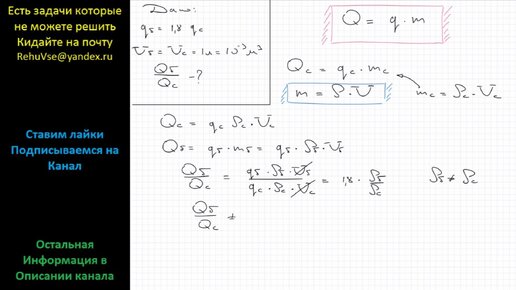 Есть задачи которые
не можете решить
Кидайте на почту
RehuVse@yandex.ru
Ставим лайки
Подписываемся на
Канал
Остальная
Информация в
Описании канала
Дано:
qб = 1,8 qс
Vб = Vс = 1л = 10⁻³ м³
Qб/Qс - ?
Q = q · m
Qс = qс · mс
m = ρ · V
mс = ρс · Vс
Qс = qс ρс · Vс
Qб = qб · mб = qб · ρб · Vб
Qб/Qс = qб · ρб · Vб / qс · ρс · Vс = 1,8 · ρб/ρс
ρб ≠ ρс
Qб/Qс ≠